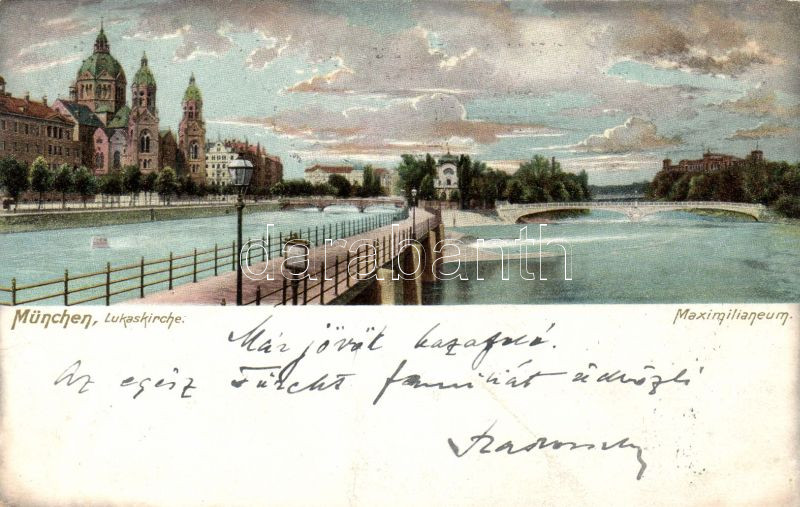 darabanth
München, Lukaskirche.
Maximilianeum.
Már jövök hazafelé.
Az egész Fürcht familiát üdvözli